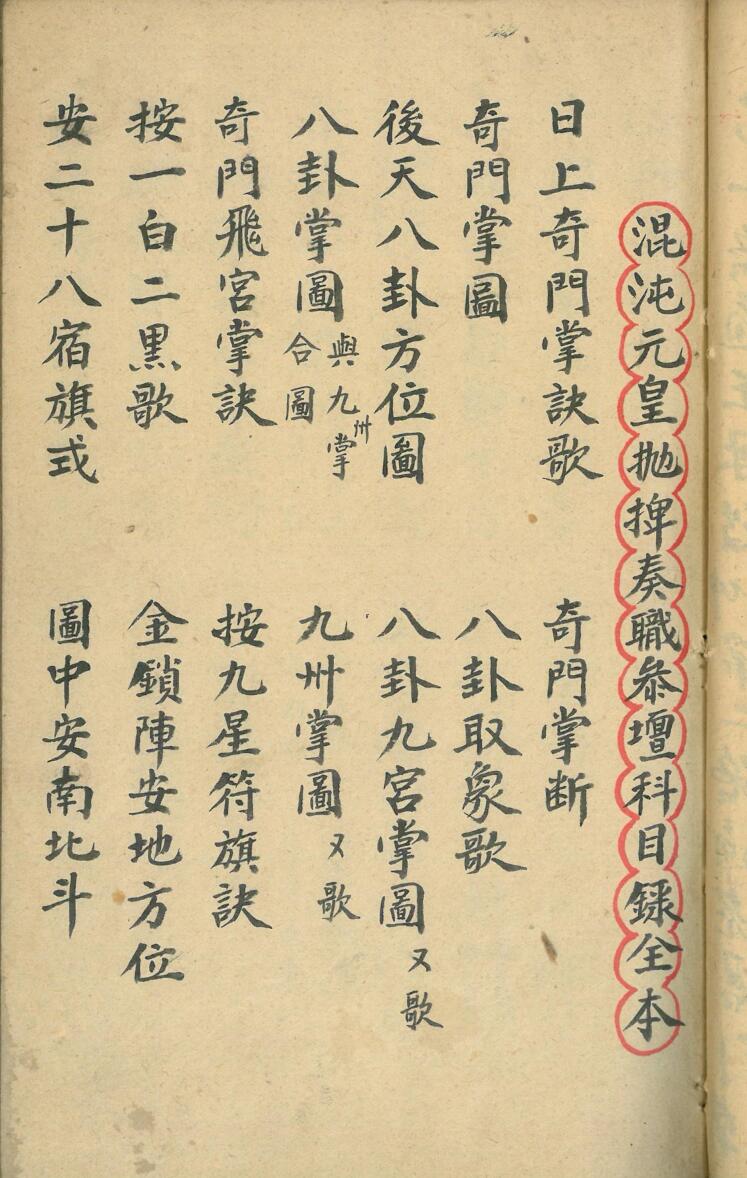 混沌元皇抛捭奏職叅壇科目録全本
日上奇門掌訣歌　奇門掌断
奇門掌圖　八卦取象歌
後天八卦方位圖　八卦九宮掌圖又歌
八卦掌圖與九州掌合圖　九州掌圖又歌
奇門飛宮掌訣　按九星符旗訣
按一白二黑歌　金鎖陣安地方位
安二十八宿旗式　圖中安南北斗